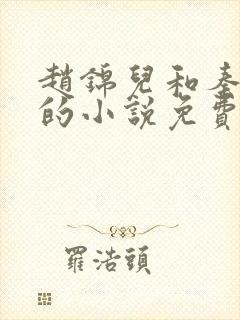 趙錦兒和秦
的小說免費
羅浩頭